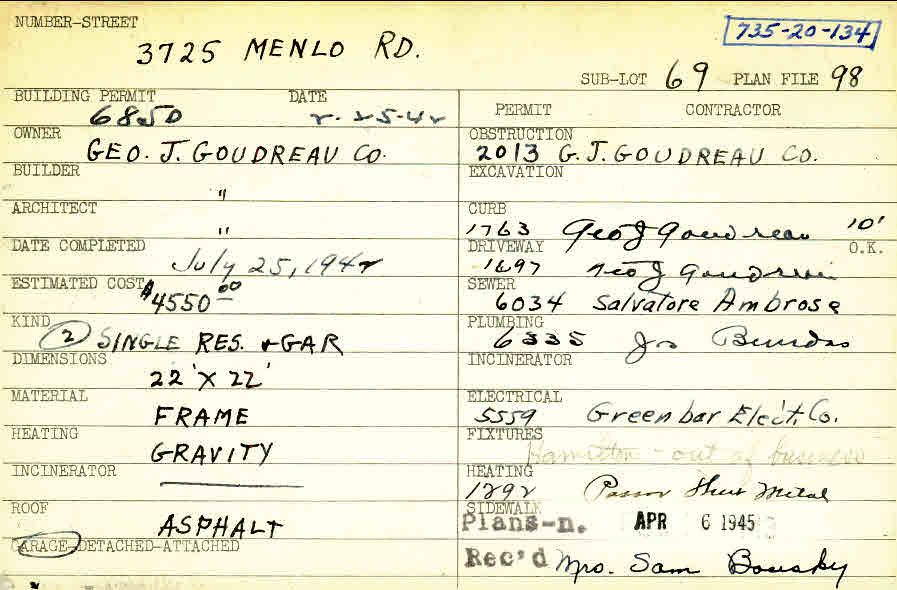 NUMBER-STREET
3725 MENLO RD.
735-20-134
SUB-LOT 69 PLAN FILE 98
BUILDING PERMIT DATE
6850 2-25-42
OWNER
GEO. J. GOUDREAU CO.
BUILDER
"
ARCHITECT
"
DATE COMPLETED
July 25, 1942
ESTIMATED COST
$4550.00
KIND
(2) SINGLE RES. + GAR
DIMENSIONS
22' X 22'
MATERIAL
FRAME
HEATING
GRAVITY
INCINERATOR
ROOF
ASPHALT
GARAGE-DETACHED-ATTACHED
PERMIT CONTRACTOR
OBSTRUCTION
2013 G. J. GOUDREAU CO.
EXCAVATION
CURB
1763 Geo J Goudreau 10'
DRIVEWAY O.K.
1697 Geo J Goudreau
SEWER
6034 Salvatore Ambrose
PLUMBING
6335 Jos
INCINERATOR
ELECTRICAL
5559 Greenbar Elect. Co.
FIXTURES
Hamilton - out of business
HEATING
1292 Sheet Metal
SIDEWALK
Plans-n. APR 6 1945
Rec'd Mrs. Sam